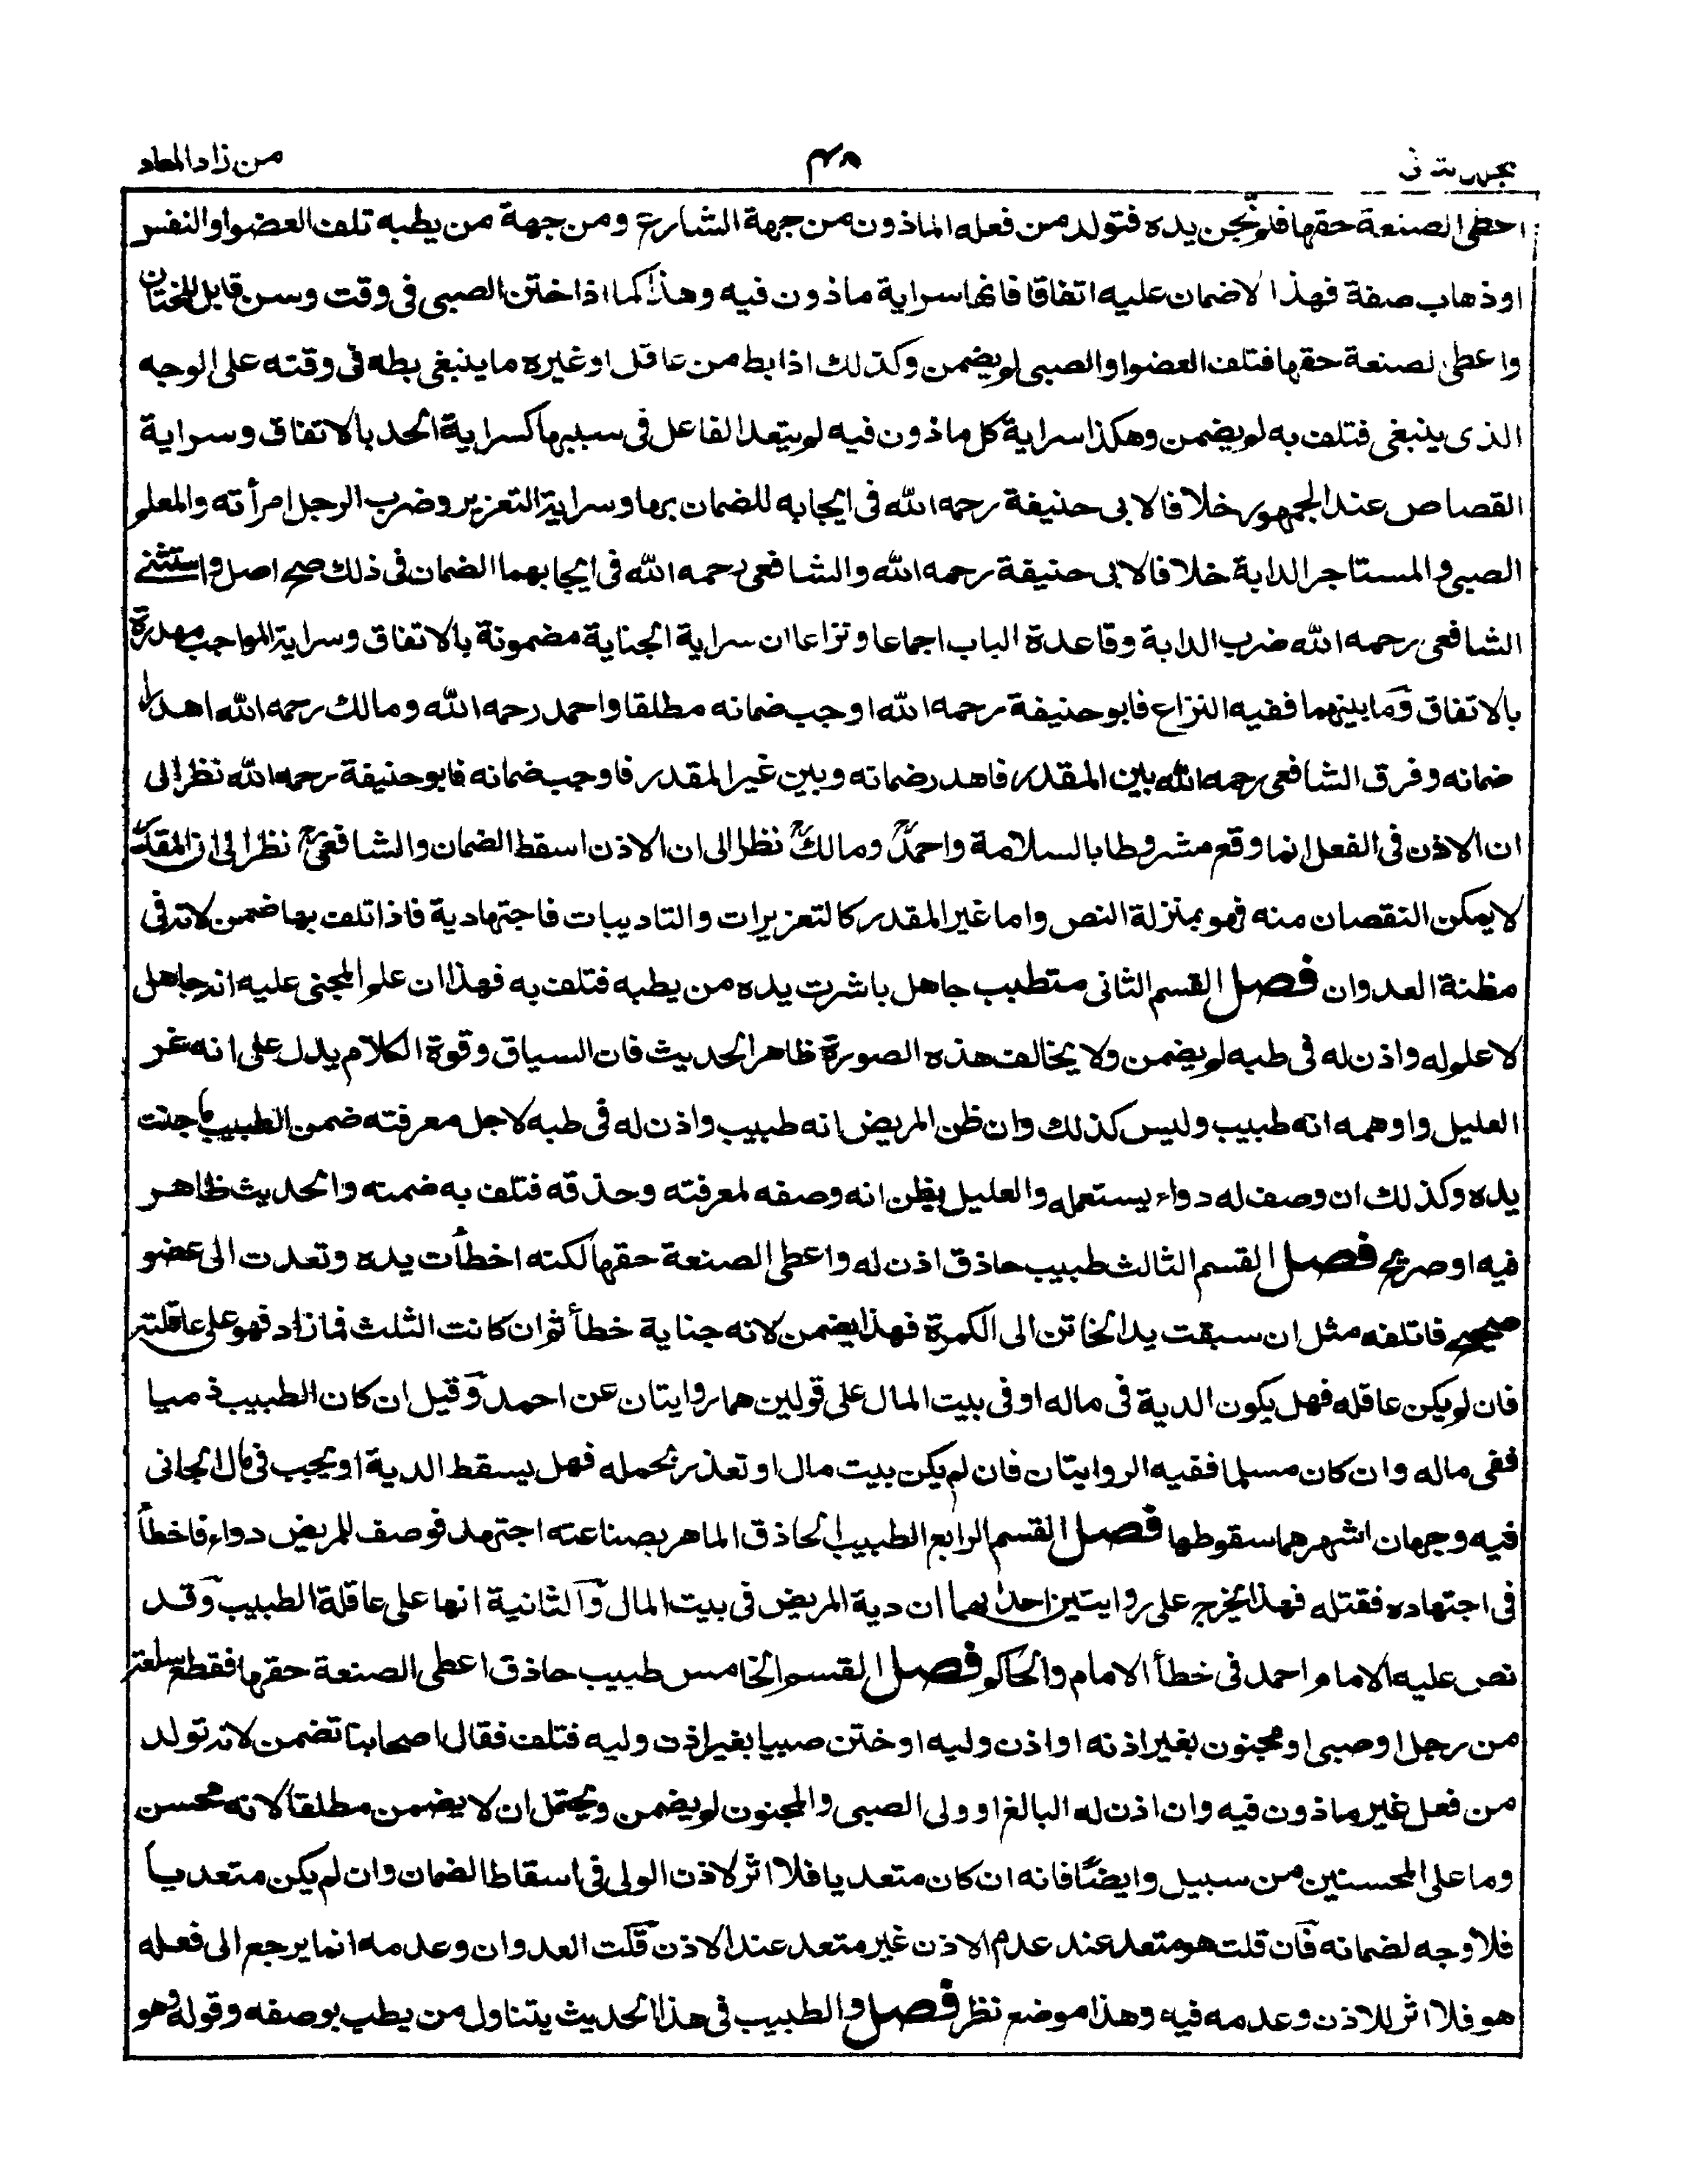 من زاد المعاد
اعطى الصنعة حقها فلم تجن يده فتولد من فعله الماذون من جهة الشارع ومن جهة من يطبه تلف العضو او النفس
او ذهاب صفة فهذا لاضمان عليه اتفاقا فانها سراية ماذون فيه وهذا كما اذا ختن الصبى فى وقت وسن قابل للختان
واعطى لصنعة حقها فتلف العضو او الصبى لم يضمن وكذلك اذا بط من عاقل او غيره ما ينبغى بطه فى وقته على الوجه
الذى ينبغى فتلف به لم يضمن وهكذا سراية كل ماذون فيه لم يتعد الفاعل فى سببها كسراية الحد بالاتفاق وسراية
القصاص عند الجمهور خلافا لابى حنيفة رحمه الله فى ايجابه للضمان بها وسراية التعزير وضرب الرجل امرأته والمعلم
الصبى والمستاجر الدابة خلافا لابى حنيفة رحمه الله والشافعى رحمه الله فى ايجابهما الضمان فى ذلك صح اصل واستثنے
الشافعى رحمه الله ضرب الدابة وقاعدة الباب اجماعا ونزاعا ان سراية الجناية مضمونة بالاتفاق وسراية الواجب مهدرة
بالاتفاق وما بينهما ففيه النزاع فابو حنيفة رحمه الله اوجب ضمانه مطلقا واحمد رحمه الله ومالك رحمه الله اهدرا
ضمانه وفرق الشافعى رحمه الله بين المقدر فاهدر ضمانه وبين غير المقدر فاوجب ضمانه فابو حنيفة رحمه الله نظر الى
ان الاذن فى الفعل انما وقع مشروطا بالسلامة واحمدؒ ومالكؒ نظرا الى ان الاذن اسقط الضمان والشافعىؒ نظر الى ان المقدر
لا يمكن النقصان منه فهو بمنزلة النص واما غير المقدر كالتعزيرات والتاديبات فاجتهادية فاذا تلف بها ضمن لانه فى
مظنة العدوان فصل القسم الثانى متطبب جاهل باشرت يده من يطبه فتلف به فهذا ان علم المجنى عليه انه جاهل
لا علم له واذن له فى طبه لم يضمن ولا يخالف هذه الصورة ظاهر الحديث فان السياق وقوة الكلام يدل على انه غر
العليل واوهمه انه طبيب وليس كذلك وان ظن المريض انه طبيب واذن له فى طبه لاجل معرفته ضمن الطبيب ما جنت
يده وكذلك ان وصف له دواء يستعمله والعليل يظن انه وصفه لمعرفته وحذقه فتلف به ضمنه والحديث ظاهر
فيه او صريح فصل القسم الثالث طبيب حاذق اذن له واعطى الصنعة حقها لكنه اخطأت يده وتعدت الى عضو
صحيح فاتلفه مثل ان سبقت يد الخاتن الى الكمرة فهذا يضمن لانه جناية خطأ ثم ان كانت الثلث فما زاد فهو على عاقلته
فان لم يكن عاقله فهل يكون الدية فى ماله او فى بيت المال على قولين هما روايتان عن احمد وقيل ان كان الطبيب ذميا
ففى ماله وان كان مسلما ففيه الروايتان فان لم يكن بيت مال او تعذر تحمله فهل يسقط الدية او يجب فى مال الجانى
فيه وجهان اشهرهما سقوطها فصل القسم الرابع الطبيب الحاذق الماهر بصناعته اجتهد فوصف للمريض دواء فاخطأ
فى اجتهاده فقتله فهذا يخرج على روايتين احدٰهما ان دية المريض فى بيت المال والثانية انها على عاقلة الطبيب وقد
نص عليه الامام احمد فى خطأ الامام والحاكم فصل القسم الخامس طبيب حاذق اعطى الصنعة حقها فقطع سلعتہ
من رجل او صبى او مجنون بغير اذنه او اذن وليه او ختن صبيا بغير اذن وليه فتلف فقال اصحابنا تضمن لانه تولد
من فعل غير ماذون فيه وان اذن له البالغ او ولى الصبى والمجنون لم يضمن ويحتمل ان لا يضمن مطلقا لانه محسن
وما على المحسنين من سبيل وايضًا فانه ان كان متعديا فلا اثر لاذن الولى فى اسقاط الضمان وان لم يكن متعديا
فلا وجه لضمانه فان قلت هو متعد عند عدم الاذن غير متعد عند الاذن قلت العدوان وعدمه انما يرجع الى فعله
هو فلا اثر للاذن وعدمه فيه وهذا موضع نظر فصل والطبيب فى هذا الحديث يتناول من يطب بوصفه وقوله وهو